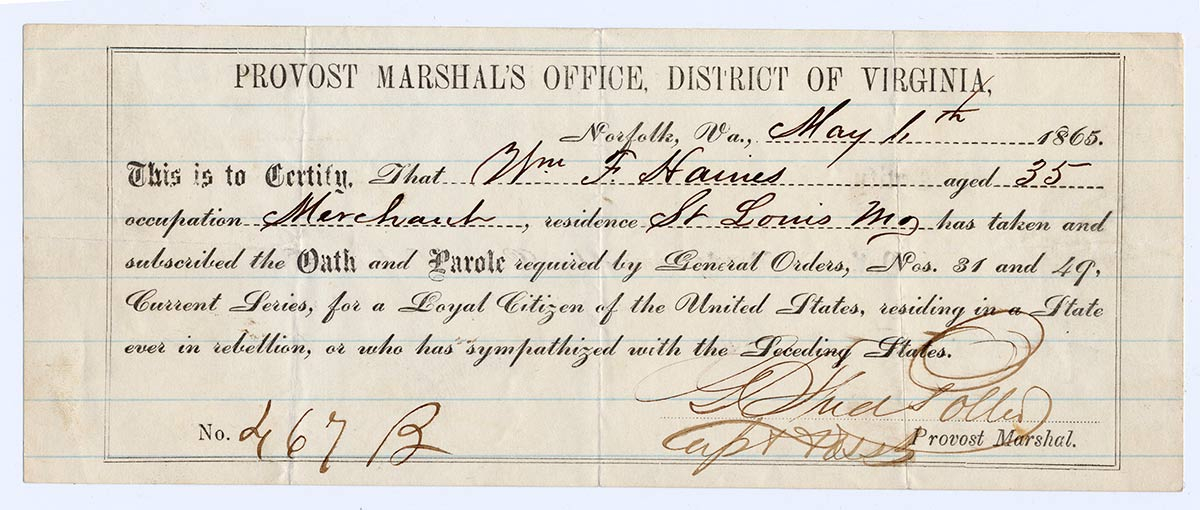 PROVOST MARSHAL'S OFFICE, DISTRICT OF VIRGINIA,
Norfolk, Va., May 6th 1865.
This is to Certify, That Wm F Haines aged 35
occupation Merchant, residence St Louis Mo has taken and
subscribed the Oath and Parole required by General Orders, Nos. 31 and 49,
Current Series, for a Loyal Citizen of the United States, residing in a State
ever in rebellion, or who has sympathized with the Seceding States.
No. 467 B
Capt & Asst Provost Marshal.